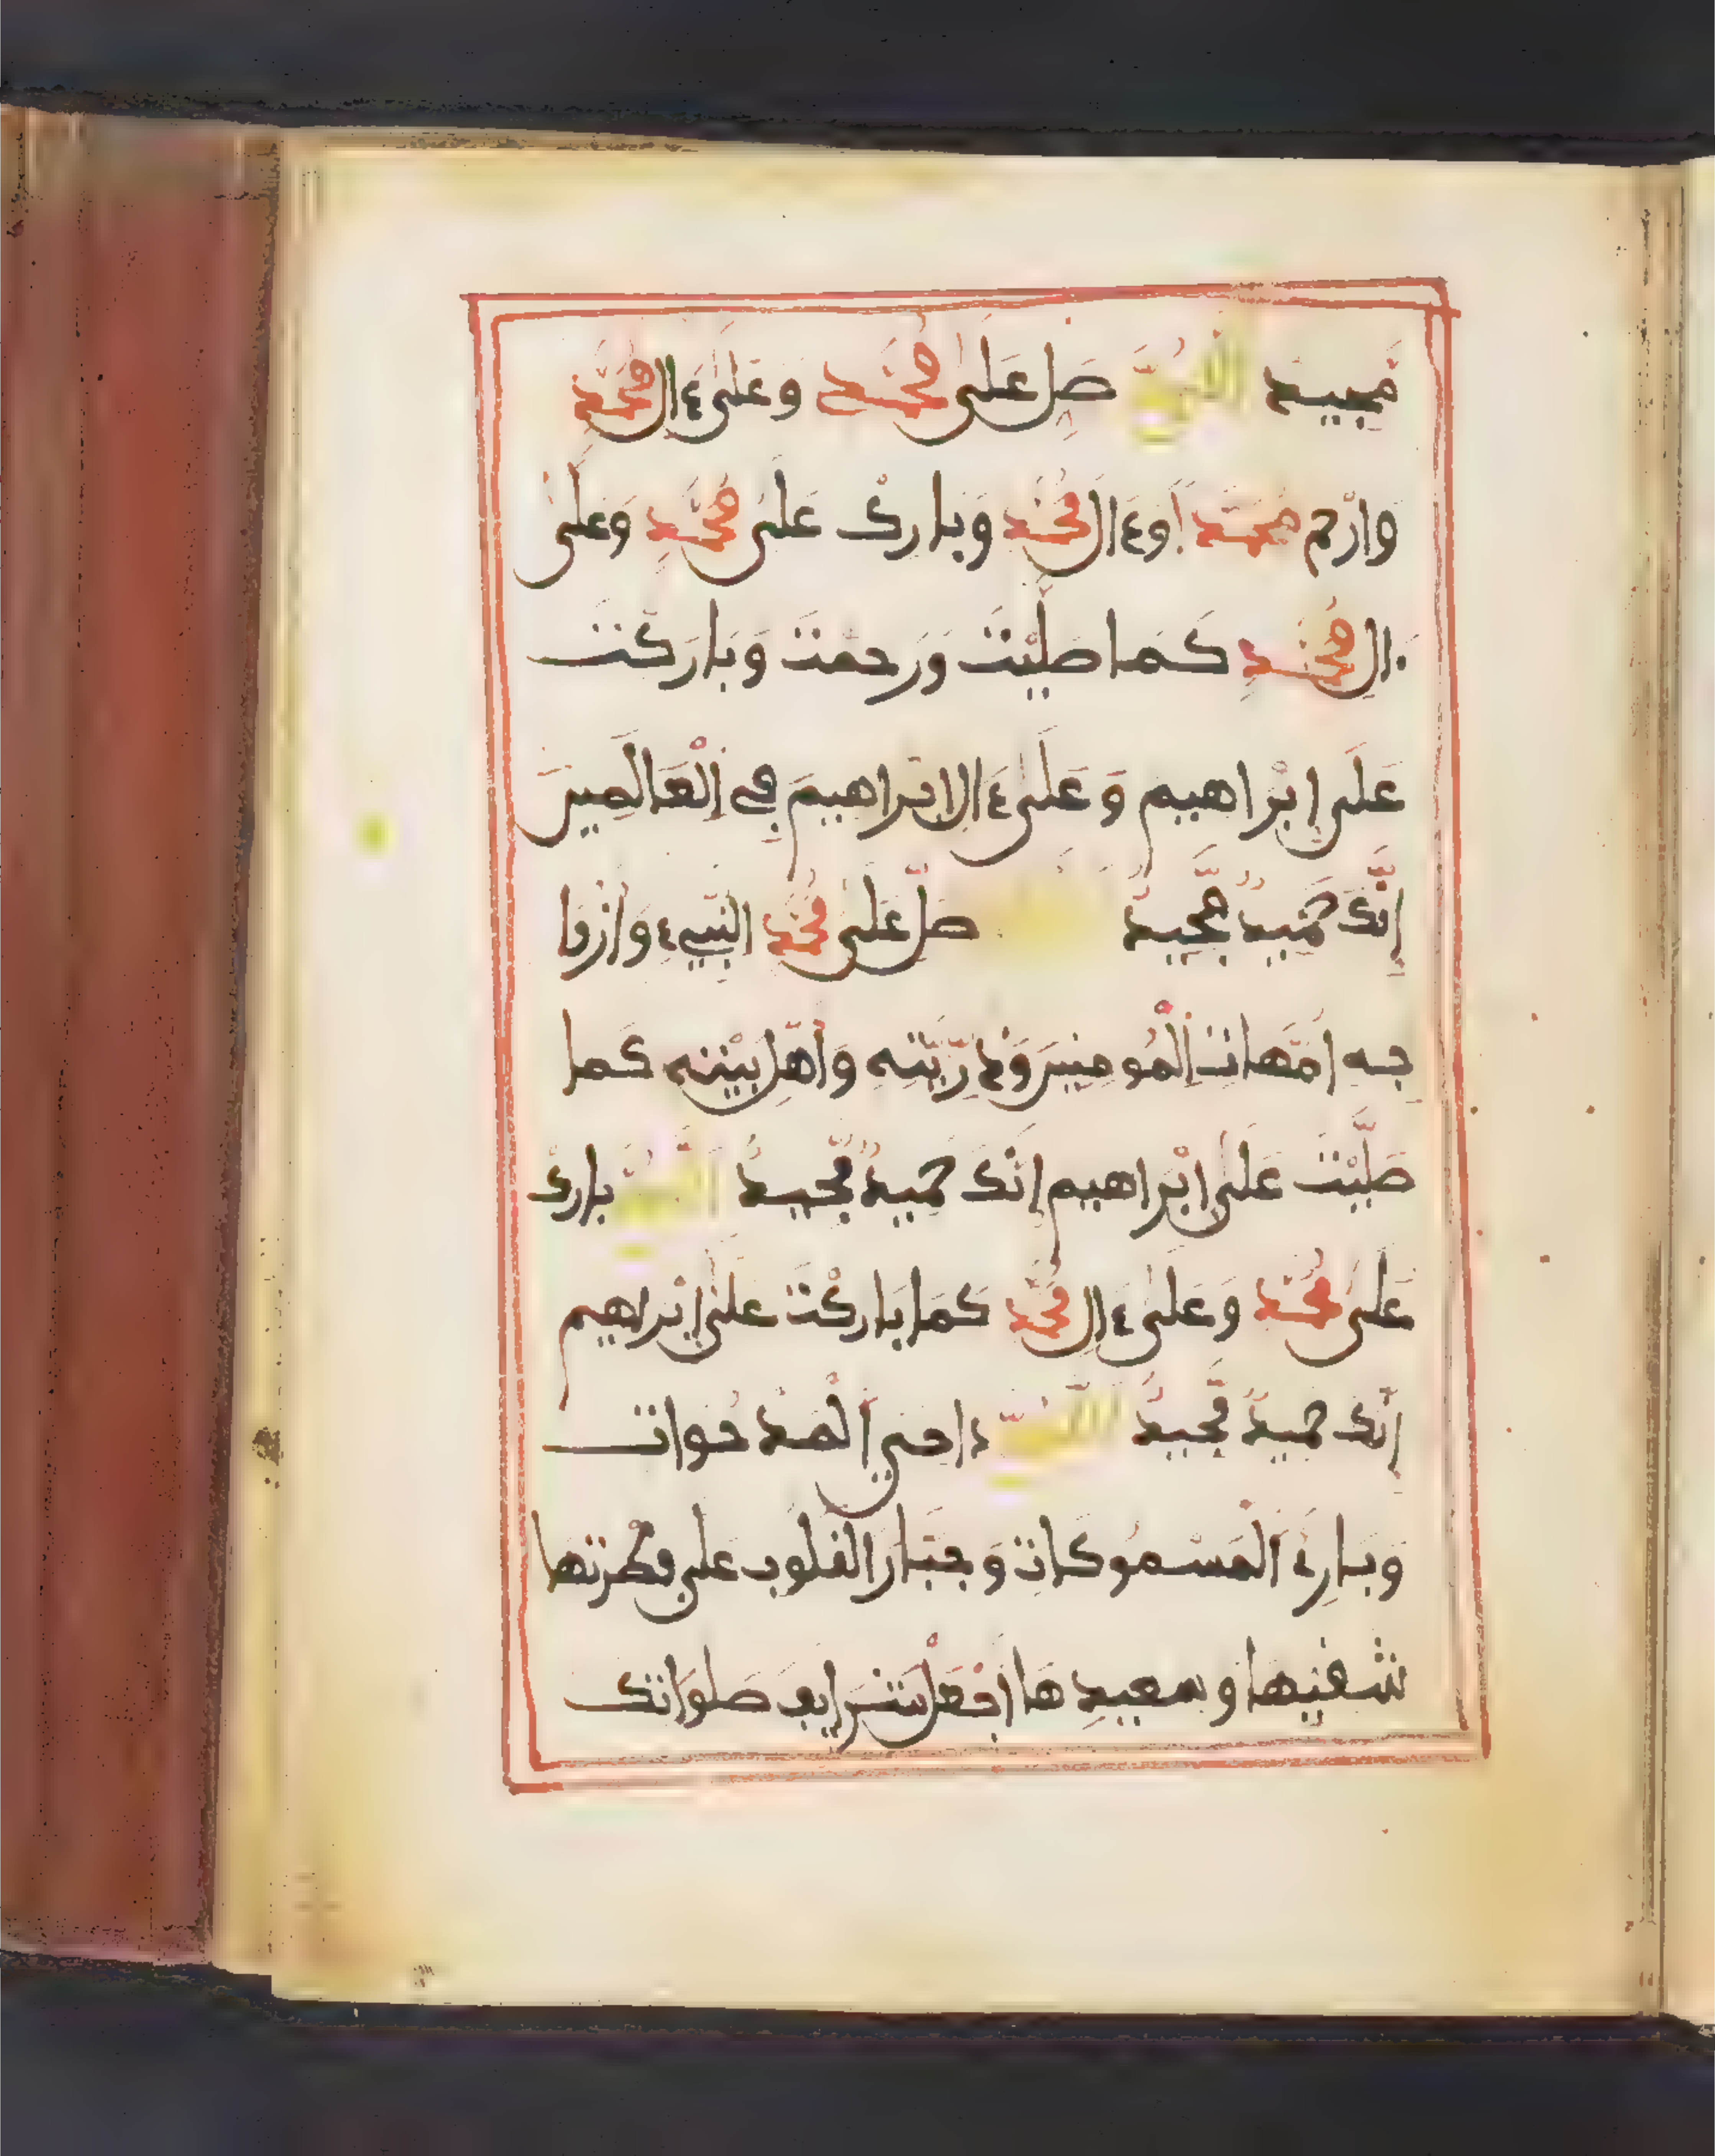 مَّجِيدٌ اللهمّ صَلِّ عَلَىٰ مُحَمَّدٍ وَعَلَىٰ ءَالِ مُحَمَّدٍ
وَارْحَم مُحَمَّداً وَءَالَ مُحَمَّدٍ وَبَارِكْ عَلَىٰ مُحَمَّدٍ وَعَلَىٰ
ءَالِ مُحَمَّدٍ كَمَا صَلَّيْتَ وَرَحِمْتَ وَبَارَكْتَ
عَلَىٰ إِبْرَاهِيم وَعَلَىٰ ءَالِ إِبْرَاهِيمَ فِي الْعَالَمِينَ
إِنَّكَ حَمِيدٌ مَّجِيدٌ صَلِّ عَلَىٰ مُحَمَّدٍ النَّبِيِّءِ وَأَزْوَا
جِهِ أُمَّهَاتِ الْمُومِنِينَ وَذُرِّيَّتِهِ وَأَهْلِ بَيْتِهِ كَمَا
صَلَّيْتَ عَلَىٰ إِبْرَاهِيم إِنَّكَ حَمِيدٌ مَّجِيدٌ اللهُمَّ بَارِكْ
عَلَىٰ مُحَمَّدٍ وَعَلَىٰ ءَالِ مُحَمَّدٍ كَمَا بَارَكْتَ عَلَىٰ إِبْرَاهِيم
إِنَّكَ حَمِيدٌ مَّجِيدٌ اللهُمَّ دَاحِيَ الْمَدْحُوَاتِ
وَبَارِئَ الْمَسْمُوكَاتِ وَجَبَّارَ الْقُلُوبِ عَلَىٰ فِطْرَتِهَا
شَقِيِّهَا وَسَعِيدِهَا اجْعَلْ شَرَايِفَ صَلَوَاتِكَ